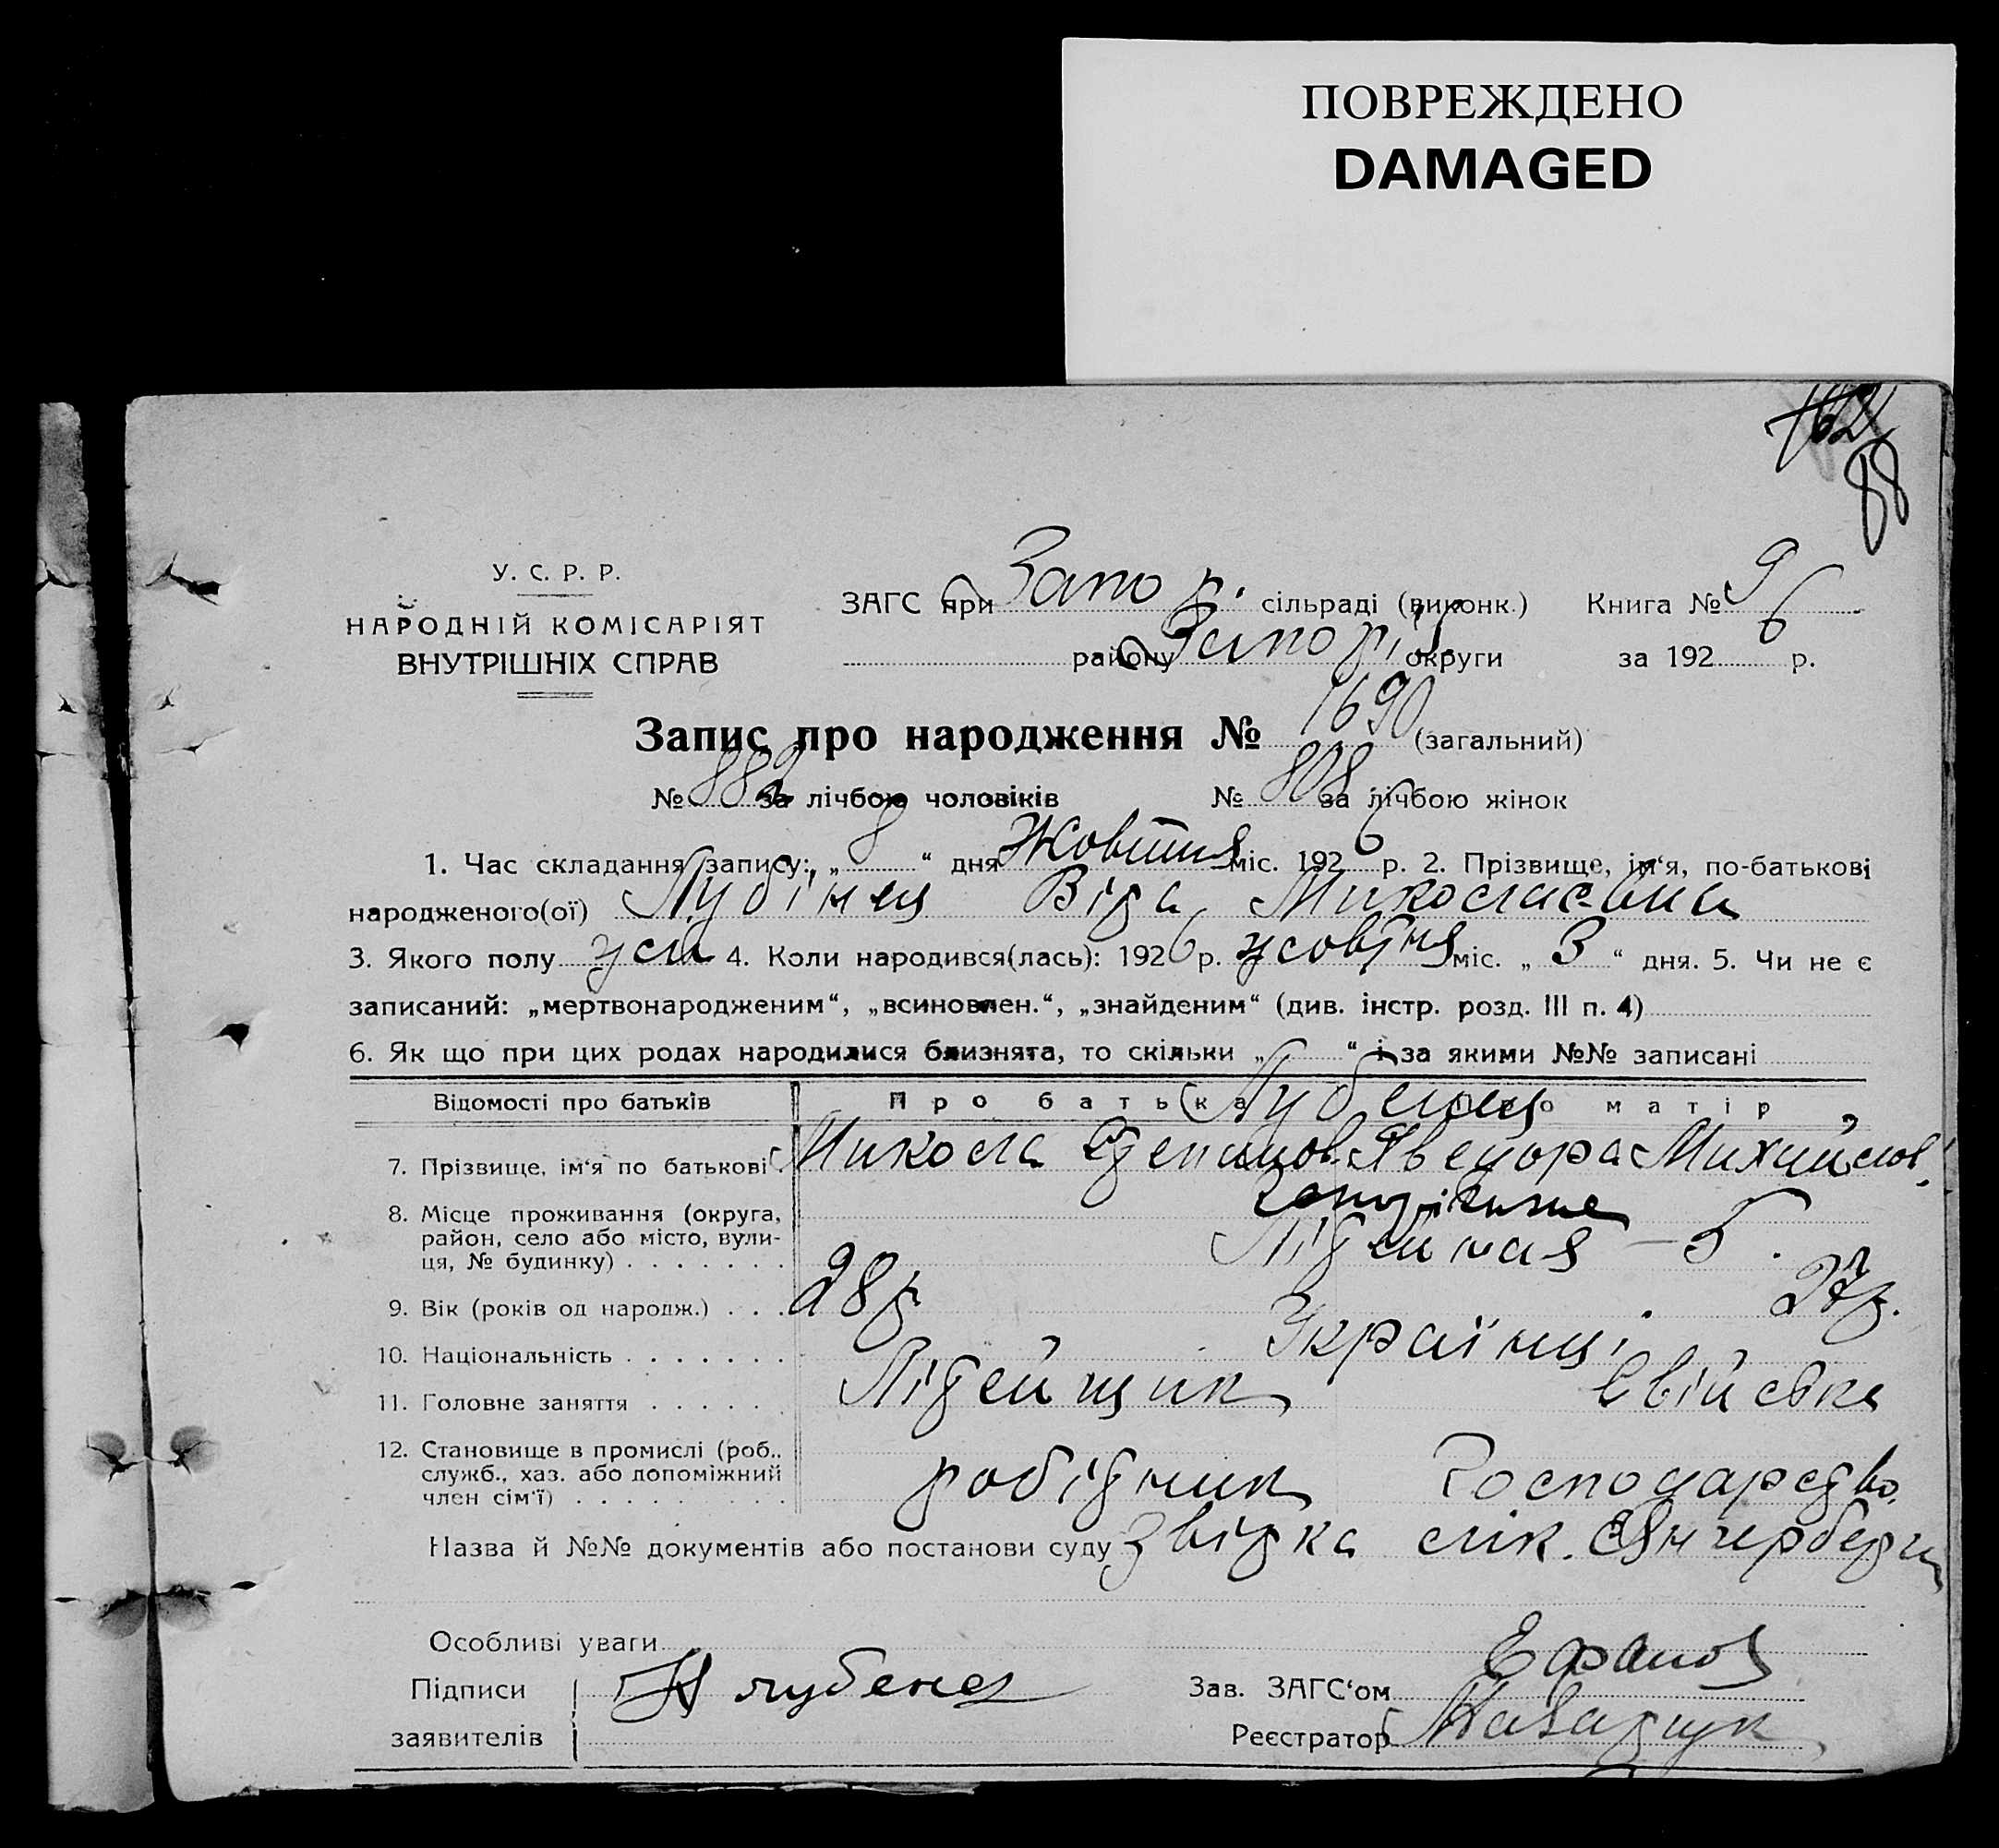 ПОВРЕЖДЕНО
DAMAGED
162
88
У. С. Р. Р.
НАРОДНІЙ КОМІСАРІЯТ
ВНУТРІШНІХ СПРАВ
ЗАГС при Запор. сільраді (виконк.) Книга № 9
району Запоріз. округи за 1926 р.
Запис про народження № 1690 (загальний)
№ 882 за лічбою чоловіків № 808 за лічбою жінок
1. Час складання запису: „8“ дня Жовтня міс. 1926 р. 2. Прізвище, ім'я, по-батькові
народженого(ої) Лубінец Віра Миколаєвна
3. Якого полу жен 4. Коли народився(лась): 1926 р. жовтня міс. „3“ дня. 5. Чи не є
записаний: „мертвонародженим“, „всиновлен.“, „знайденим“ (див. інстр. розд. III п. 4)
6. Як що при цих родах народилися близнята, то скільки „ “ і за якими №№ записані
Відомості про батьків Про батька Про матір
Лубенец
7. Прізвище, ім'я по батькові Микола Степанов. Явдора Михайлов.
8. Місце проживання (округа, район, село або місто, вулиця, № будинку) Запоріжжє
Літейная – 5.
9. Вік (років од народж.) 28 р. 27 р.
10. Національність Українці
11. Головне заняття Літейщик Свійське
12. Становище в промислі (роб., служб., хаз. або допоміжний член сім'ї) робітник Господарство
Назва й №№ документів або постанови суду Звірка лік.
Особливі уваги
Підписи заявителів Н Лубенец
Зав. ЗАГС'ом
Реєстратор